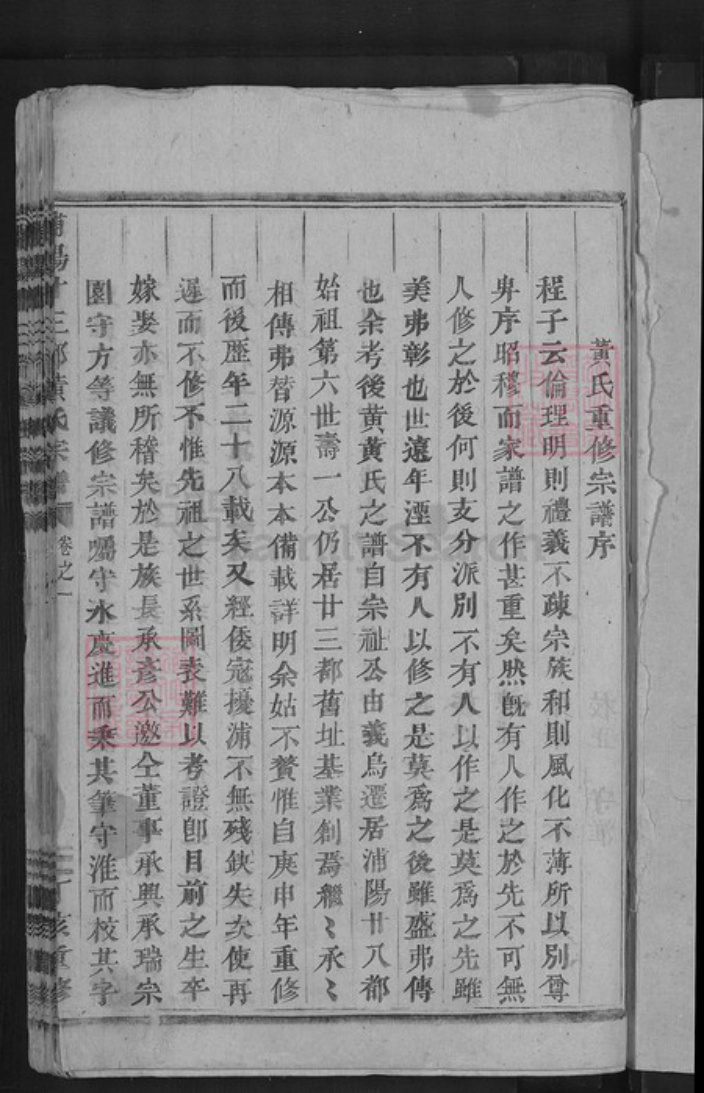 黃氏重修宗譜序
程子云倫理明則禮義不疎宗族和則風化不薄所以別尊
卑序昭穆而家譜之作甚重矣然既有人作之於先不可無
人修之於後何則支分派別不有人以作之是莫爲之先雖
美弗彰也世遠年湮不有人以修之是莫爲之後雖盛弗傳
也余考後黄黃氏之譜自宗祉公由義烏遷居浦陽廿八都
始祖第六世壽一公仍居廿三都舊址基業創焉繼〻承〻
相傳弗替源源本本備載詳明余姑不贅惟自庚申年重修
而後歷年二十八載矣又經倭寇擾浦不無殘鈌失次使再
遲而不修不惟先祖之世系圖表難以考證卽目前之生卒
嫁娶亦無所稽矣於是族長承彥公邀仝董事承興承瑞宗
園守方等議修宗譜囑守永慶進而秉其筆守淮而校其字
浦陽廿三都黃氏宗譜
卷之一
丁亥重修